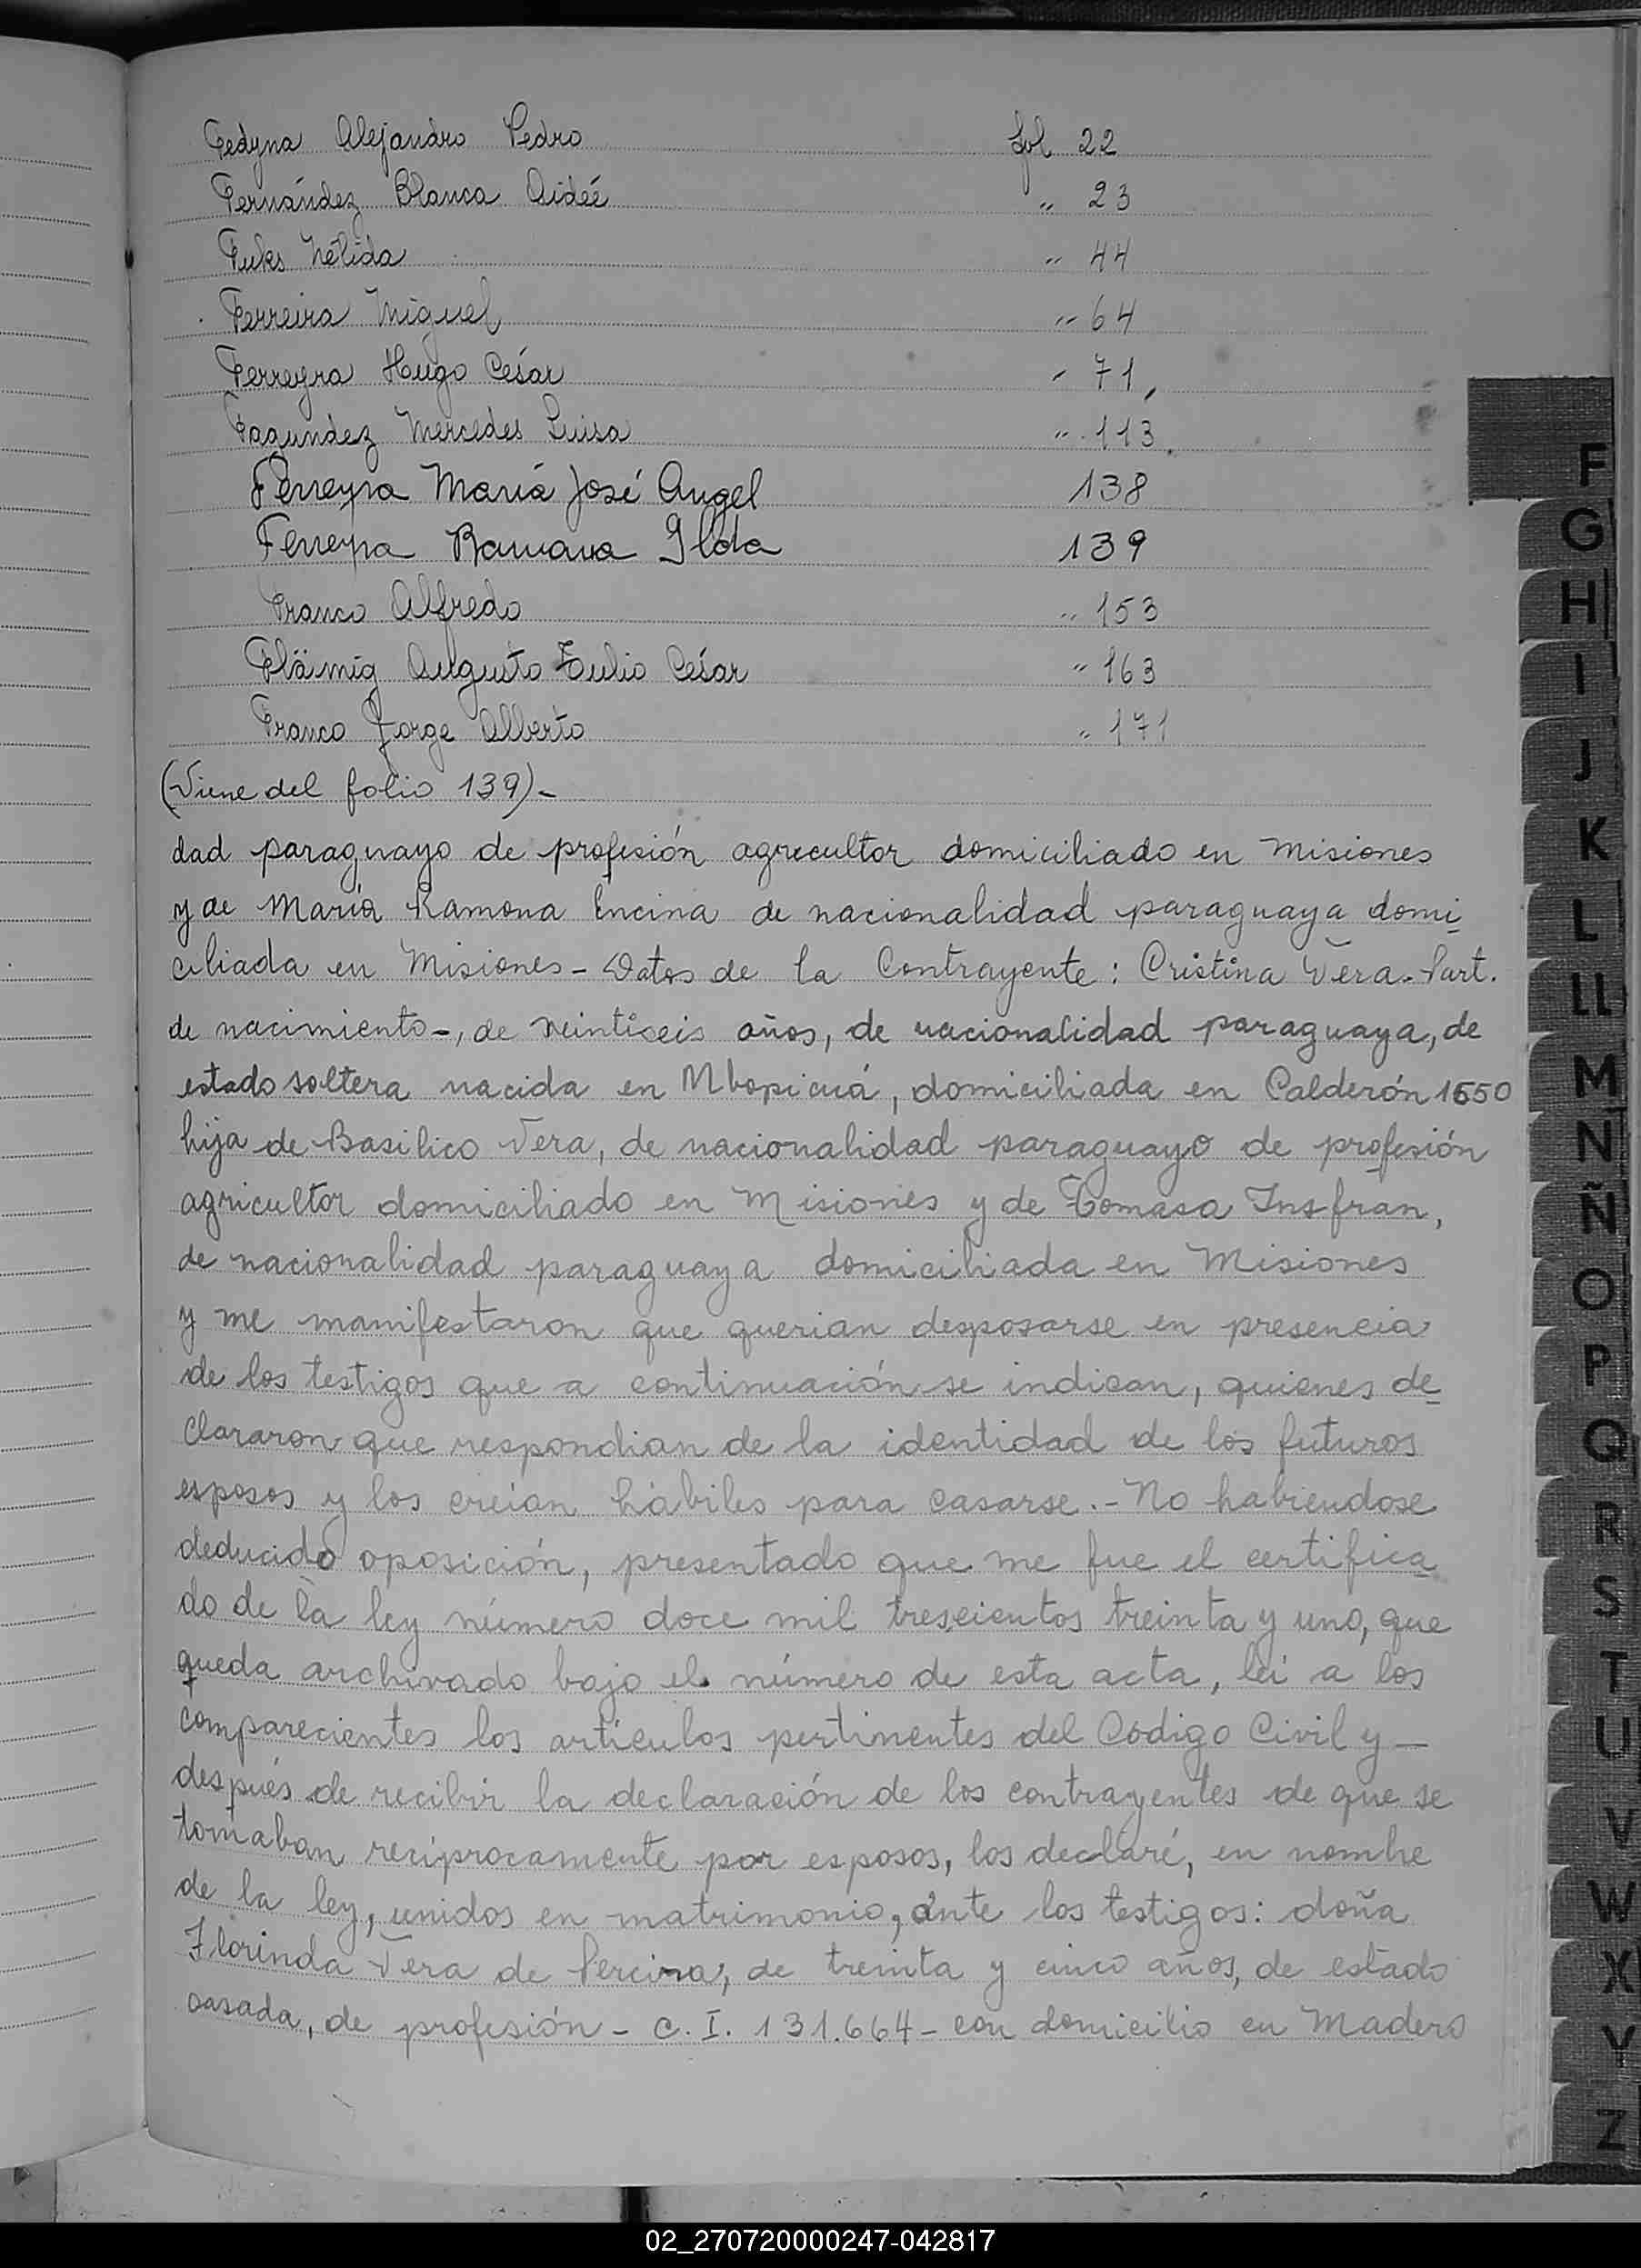 Fedyna Alejandro Pedro fol 22
Fernández Blanca Aideé " 23
Fuks Nélida " 44
Ferreira Miguel " 64
Ferreyra Hugo César " 71
Fagundez Mercedes Luisa " 113
Ferreyra María José Angel 138
Ferreyra Ramona Ilda 139
Franco Alfredo " 153
Fläimig Augusto Tulio César " 163
Franco Jorge Alberto " 171
(Viene del folio 139)-
dad paraguayo de profesión agrecultor domiciliado en Misiones
y de María Ramona Encina de nacionalidad paraguaya domi
ciliada en Misiones - Datos de la Contrayente: Cristina Vera - Part.
de nacimiento -, de veintiseis años, de nacionalidad paraguaya, de
estado soltera nacida en Mbopicuá, domiciliada en Calderón 1550
hija de Basilico Vera, de nacionalidad paraguayo de profesión
agricultor domiciliado en Misiones y de Tomasa Insfran,
de nacionalidad paraguaya domiciliada en Misiones
y me manifestaron que querian desposarse en presencia
de los testigos que a continuación se indican, quienes de
clararon que respondian de la identidad de los futuros
esposos y los creían hábiles para casarse.- No habiendose
deducido oposición, presentado que me fue el certifica
do de la ley número doce mil trescientos treinta y uno, que
queda archivado bajo el número de esta acta, leí a los
comparecientes los artículos pertinentes del Código Civil y -
después de recibir la declaración de los contrayentes de que se
tomaban recíprocamente por esposos, los declaré, en nombre
de la ley, unidos en matrimonio, ante los testigos: doña
Florinda Vera de Pereira, de treinta y cinco años, de estado
casada, de profesión - C. I. 131.664 - con domicilio en Madero
F
G
H
I
J
K
L
LL
M
N
Ñ
O
P
Q
R
S
T
U
V
W
X
Y
Z
02_270720000247-042817